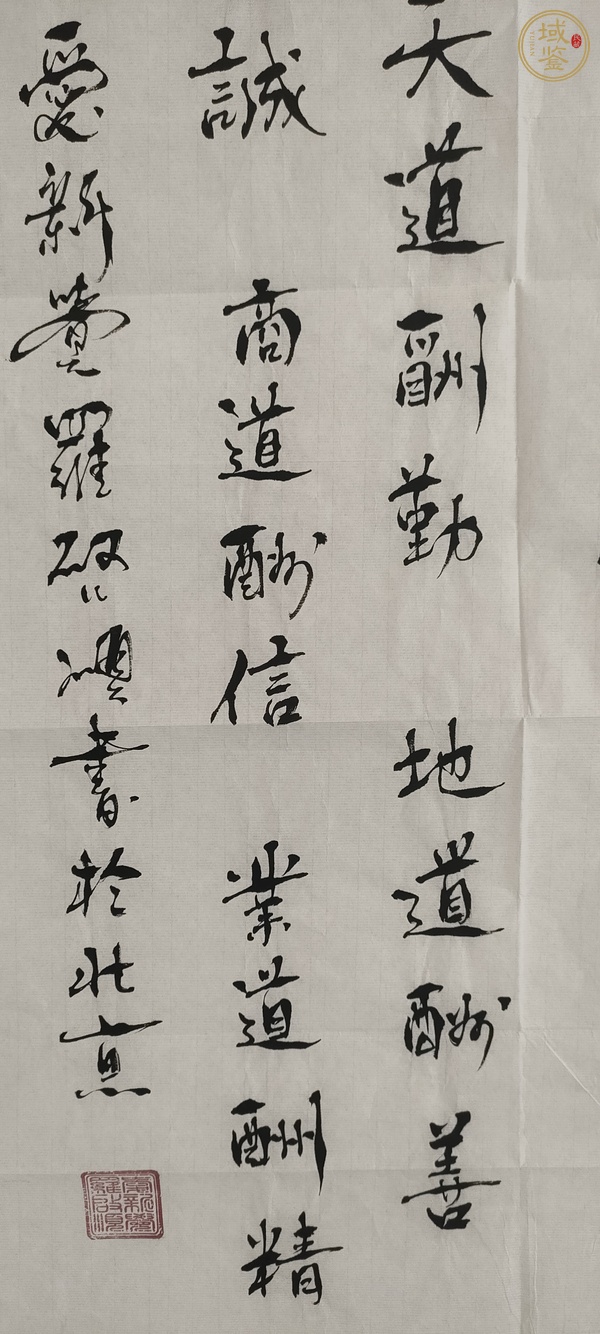 天道酬勤 地道酬善
誠 商道酬信 業道酬精
愛新覺羅啓澒書於北京
愛新覺羅啟澒
域鉴